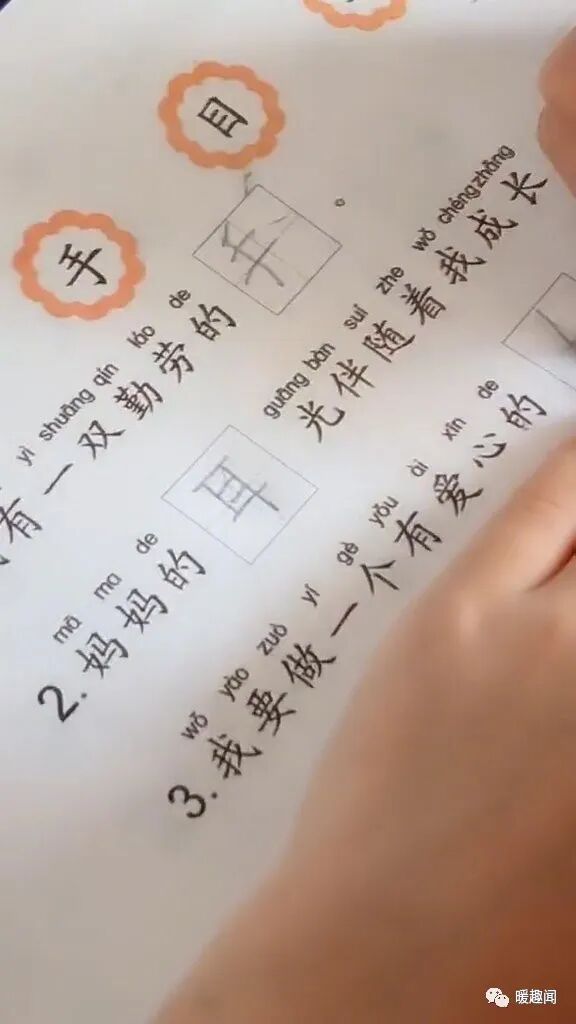 手 目
yì shuāng qín láo de
有一双勤劳的手。
mā ma de guāng bàn suí zhe wǒ chéngzhǎng
2. 妈妈的耳光伴随着我成长
wǒ yào zuò yí gè yǒu ài xīn de
3. 我要做一个有爱心的
暖趣闻